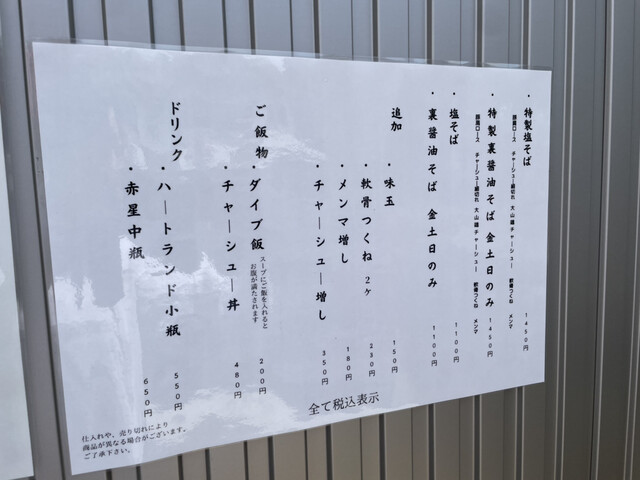 ・特製塩そば 1450円
豚肩ロース チャーシュー細切れ 大山鶏チャーシュー 軟骨つくね メンマ
・特製裏醤油そば 金土日のみ 1450円
豚肩ロース チャーシュー細切れ 大山鶏チャーシュー 軟骨つくね メンマ
・塩そば 1100円
・裏醤油そば 金土日のみ 1100円
追加
・味玉 150円
・軟骨つくね 2ヶ 230円
・メンマ増し 180円
・チャーシュー増し 350円
ご飯物
・ダイブ飯 200円
スープにご飯を入れると
お腹が満たされます
・チャーシュー丼 480円
ドリンク
・ハートランド小瓶 550円
・赤星中瓶 650円
全て税込表示
仕入れや、売り切れにより
商品が異なる場合がございます。
ご了承下さい。